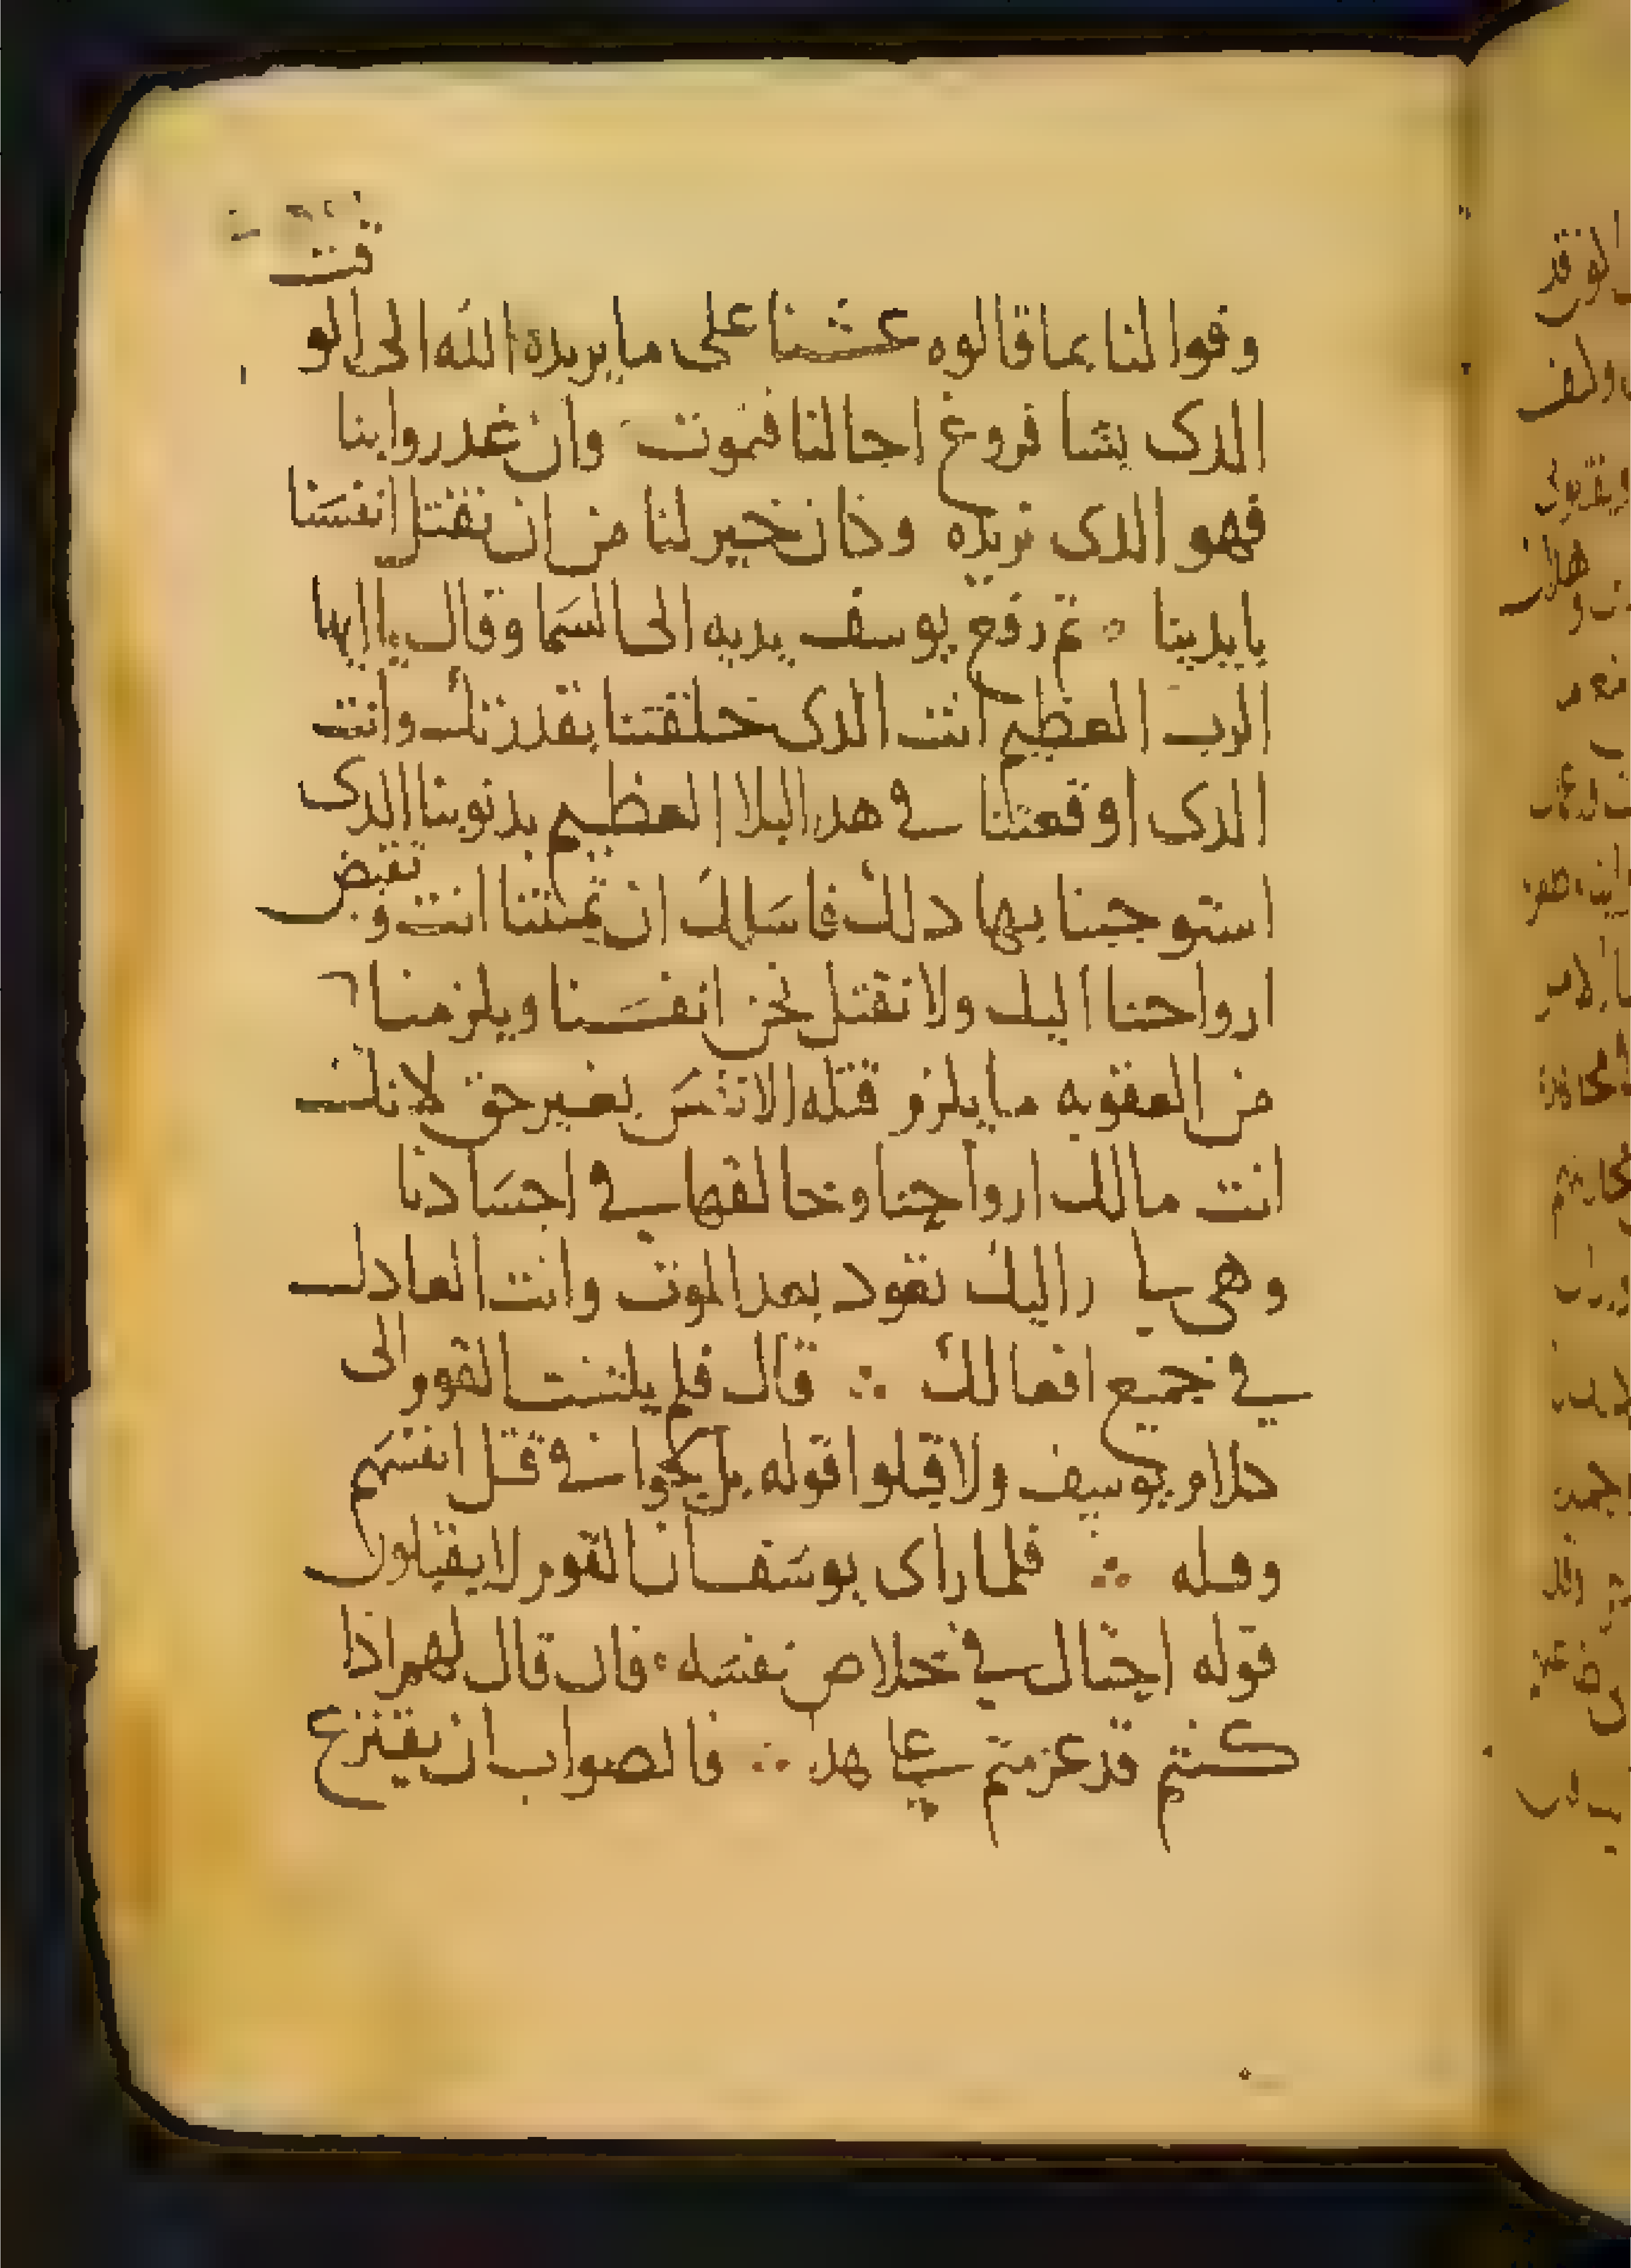 وفوا لنا بما قالوه عشنا على ما يريده الله الى الوقت
الدى يشا فروغ اجالنا فنموت وان غدروا بنا
فهو الدى نريده وكان خير لنا من ان نقتل انفسنا
بايدينا ثم رفع يوسف يديه الى السما وقال يا ايها
الرب العظيم انت الدى خلقتنا بقدرتك وانت
الدى اوقعتنا في هدا البلا العظيم بدنوبنا الدى
استوجبنا بها دلك فاسلك ان تميتنا انت وتقبض
ارواحنا اليك ولا نقتل نحن انفسنا ويلزمنا
من العقوبه ما يلزم قتله الانفس بغير حق لانك
انت مالك ارواحنا وخالقها في اجسادنا
وهي اليك تعود بعد الموت وانت العادل
في جميع افعالك ∴ قال فلم يلتفت القوم الى
كلام يوسف ولا قبلوا قوله بل لجوا في قتل انفسهم
وقتله ∴ فلما راى يوسف ان القوم لا يقبلون
قوله احتال في خلاص نفسه فان قال لهم اذا
كنتم قد عزمتم على هدا ∴ فالصواب ان يقترع